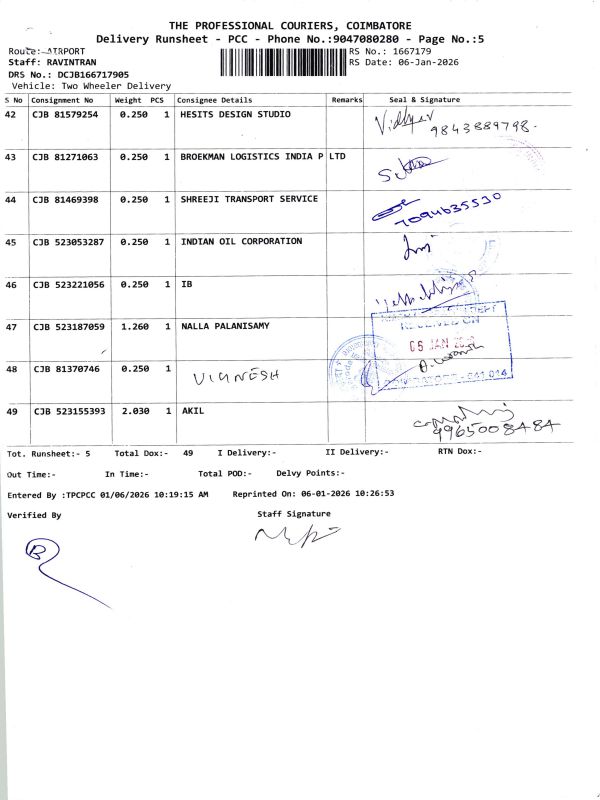 THE PROFESSIONAL COURIERS, COIMBATORE
Delivery Runsheet - PCC - Phone No.:9047080280 - Page No.:5
Route: AIRPORT
RS No.: 1667179
Staff: RAVINTRAN
RS Date: 06-Jan-2026
DRS No.: DCJB166717905
Vehicle: Two Wheeler Delivery
S No Consignment No Weight PCS Consignee Details Remarks Seal & Signature
42 CJB 81579254 0.250 1 HESITS DESIGN STUDIO
9843889798.
43 CJB 81271063 0.250 1 BROEKMAN LOGISTICS INDIA P LTD
44 CJB 81469398 0.250 1 SHREEJI TRANSPORT SERVICE
7094635530
45 CJB 523053287 0.250 1 INDIAN OIL CORPORATION
46 CJB 523221056 0.250 1 IB
RECEIVED ON
47 CJB 523187059 1.260 1 NALLA PALANISAMY
48 CJB 81370746 0.250 1 VIGNESH
49 CJB 523155393 2.030 1 AKIL
9965008484
Tot. Runsheet:- 5 Total Dox:- 49 I Delivery:- II Delivery:- RTN Dox:-
Out Time:- In Time:- Total POD:- Delvy Points:-
Entered By :TPCPCC 01/06/2026 10:19:15 AM Reprinted On: 06-01-2026 10:26:53
Verified By Staff Signature
B